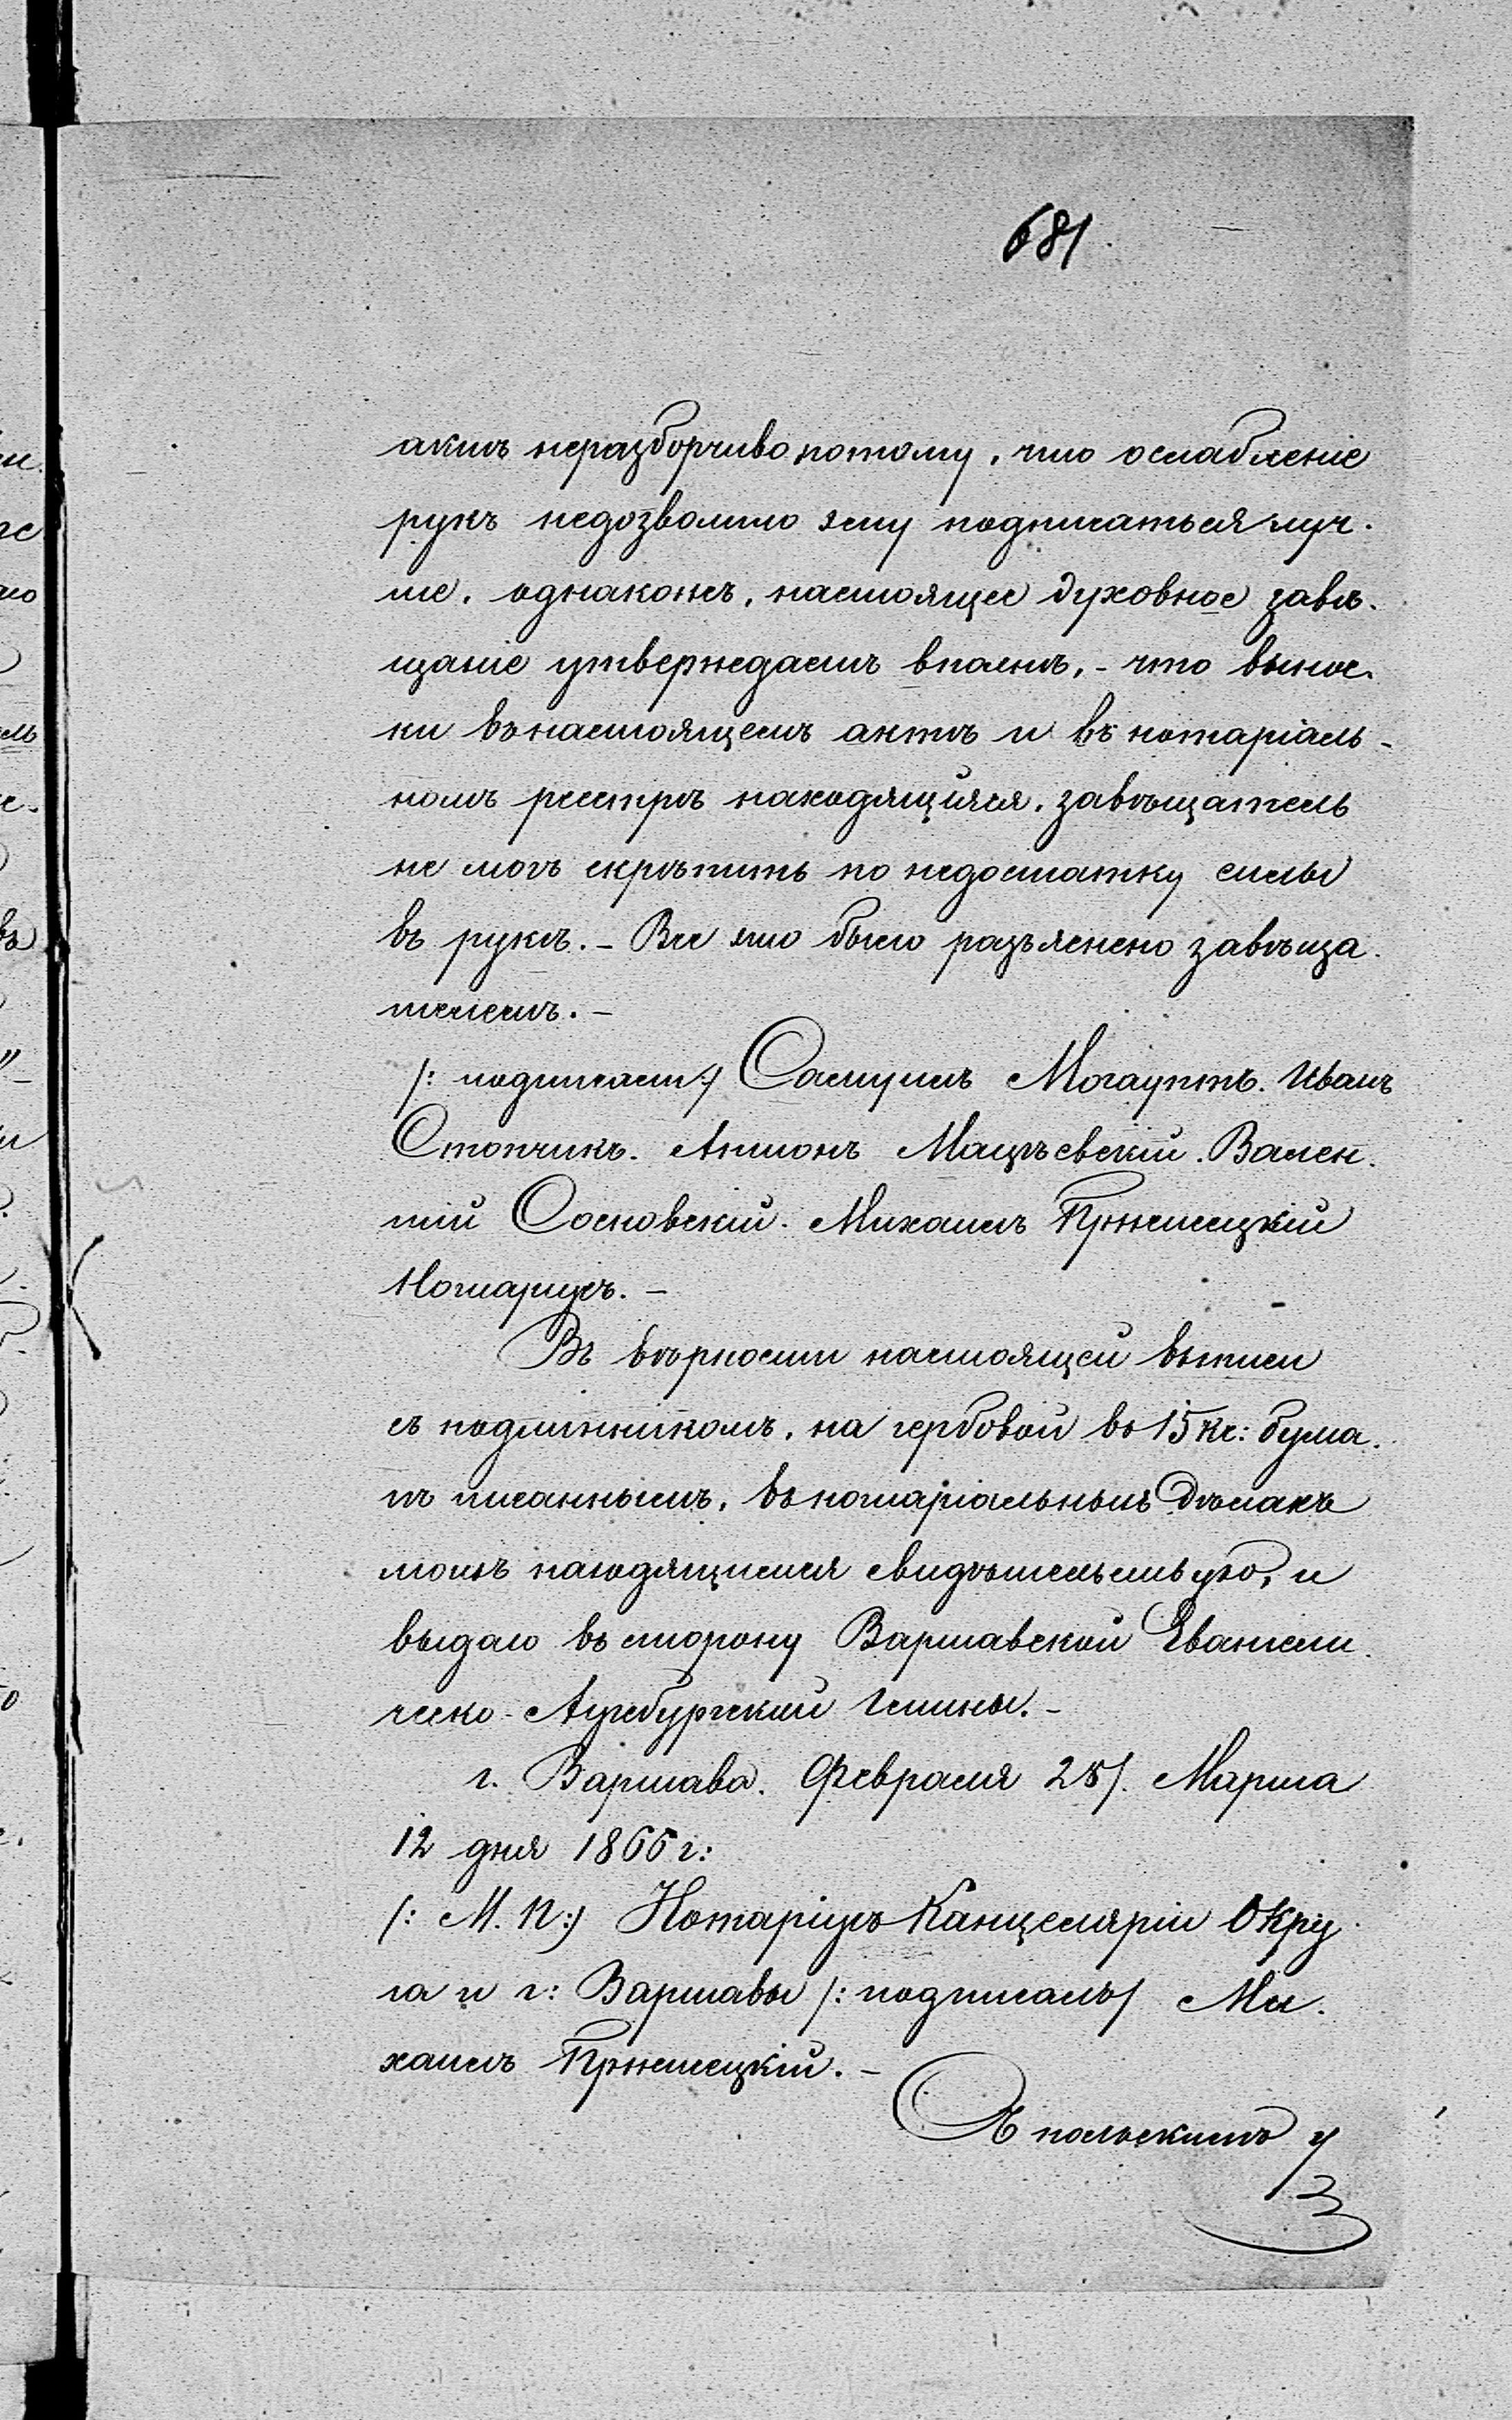 681
актъ неразборчиво потому, что ослабленіе
рукъ недозволило ему подписаться луч-
ше, однакожъ, настоящее духовное завѣ-
щаніе утверждаетъ вполнѣ, - что вынос-
ки въ настоящемъ актѣ и въ нотаріаль-
номъ реестрѣ находящійся, завѣщатель
не могъ скрѣпить по недостатку силы
въ рукѣ. - Все это было разъяснено завѣща-
телемъ. -
/: подписали :/ Самуилъ Могауптъ. Иванъ
Стопчикъ. Антонъ Мацѣевскій. Вален-
тій Сосновскій. Михаилъ Пржилецкій
Нотаріусъ. -
Въ вѣрности настоящей выписи
съ подлинникомъ, на гербовой въ 15 кс: бума-
гѣ писаннымъ, въ нотаріальныхъ дѣлахъ
моихъ находящимся свидѣтельствую, и
выдаю въ сторону Варшавской Евангели-
ческо-Аугсбургской Гмины. -
г. Варшава. Февраля 28/. Марта
12 дня 1866 г:
/: М. П :/ Нотаріусъ Канцеляріи Окру-
га и г: Варшавы /: подписалъ/ Ми-
хаилъ Пржилецкій. -
Съ польскимъ